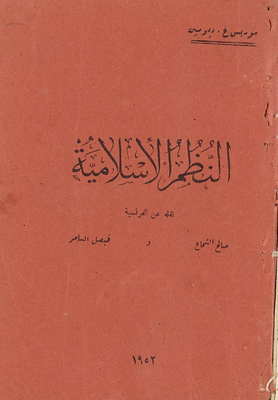 موريس غ. ديمومبين
النُّظُم الأسلاميّة
نقله عن الفرنسية
صالح الشماع و فيصل السامر
١٩٥٢